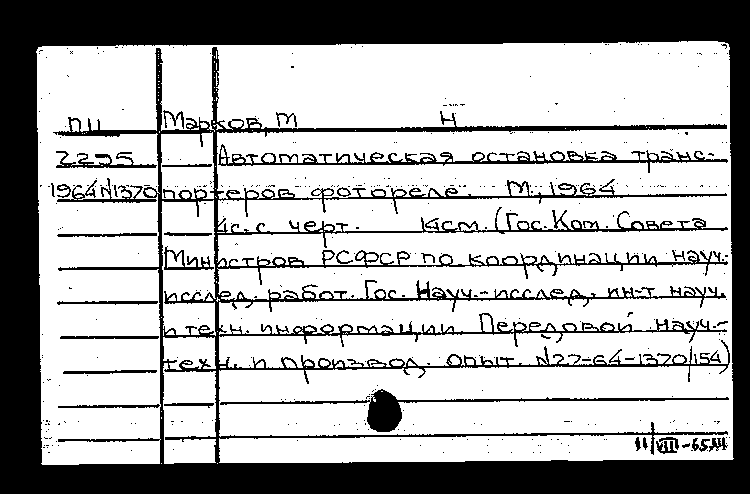 ПЦ Марков, М Н
2295 Автоматическая остановка транс-
1964 N1370 портеров фотореле. М., 1964
4с. с черт. 14см. (Гос. Ком. Совета
Министров РСФСР по координации науч.-
исслед. работ. Гос. Науч.-исслед. ин-т науч.
и техн. информации. Передовой науч.-
техн. и производ. опыт. N27-64-1370/154)